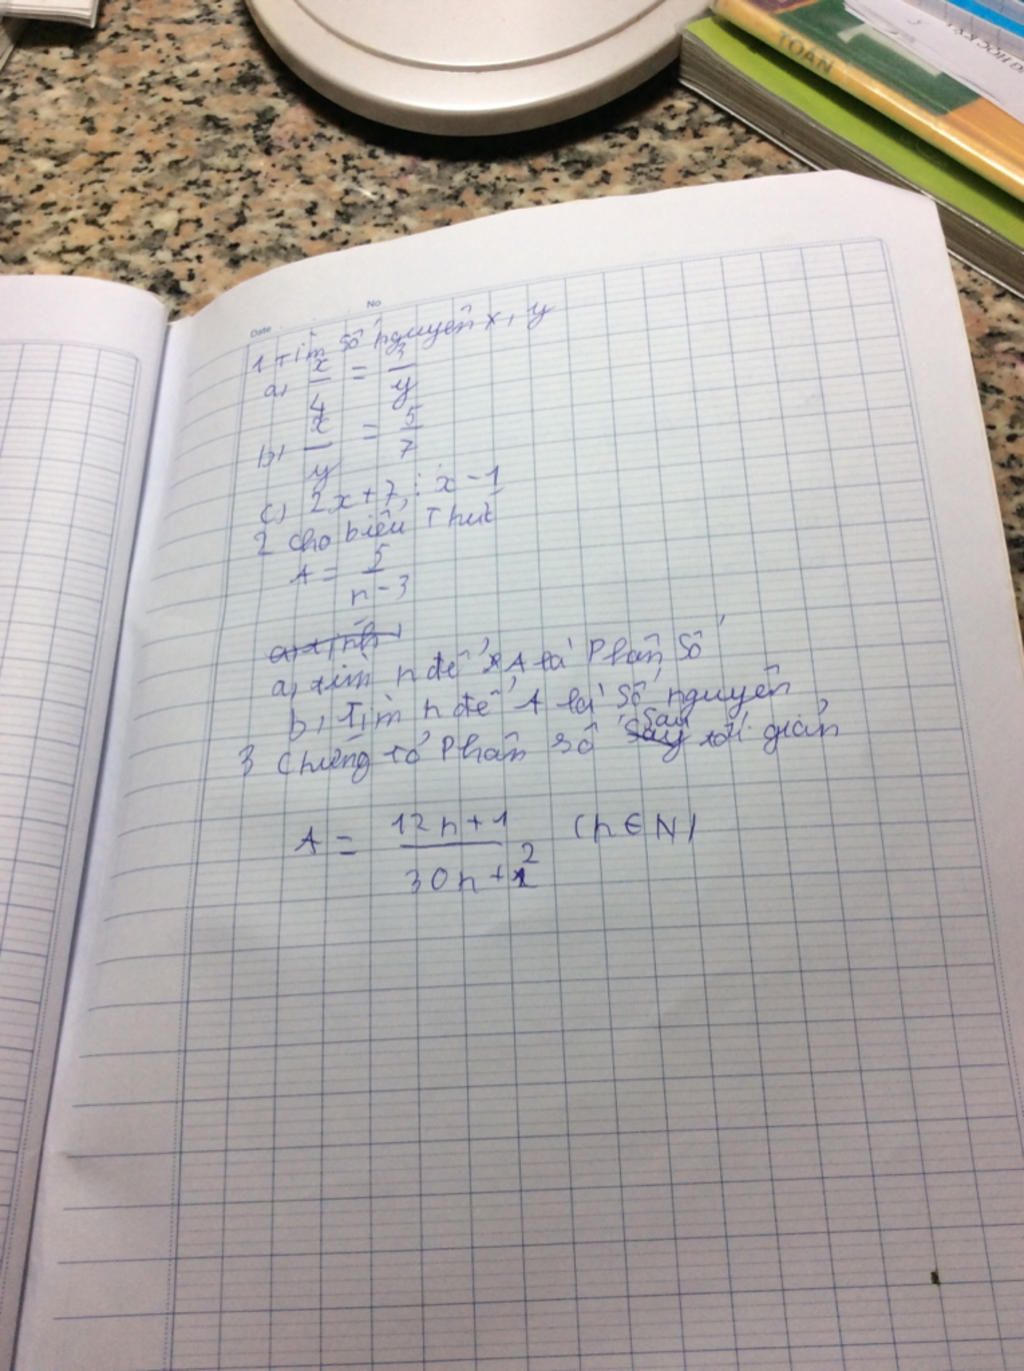 TOÁN
Date No
1 Tìm số nguyên x, y
a, x/4 = 3/y
b, x/y = 5/7
c, 2x + 7 ⋮ x - 1
2 cho biểu thức
A = 5/n - 3
a, tìm n để A là Phân số
b, Tìm n để A là số nguyên
3 Chứng tỏ Phân số sau tối giản
A = 12n+1/30n+2 (n ∈ N)